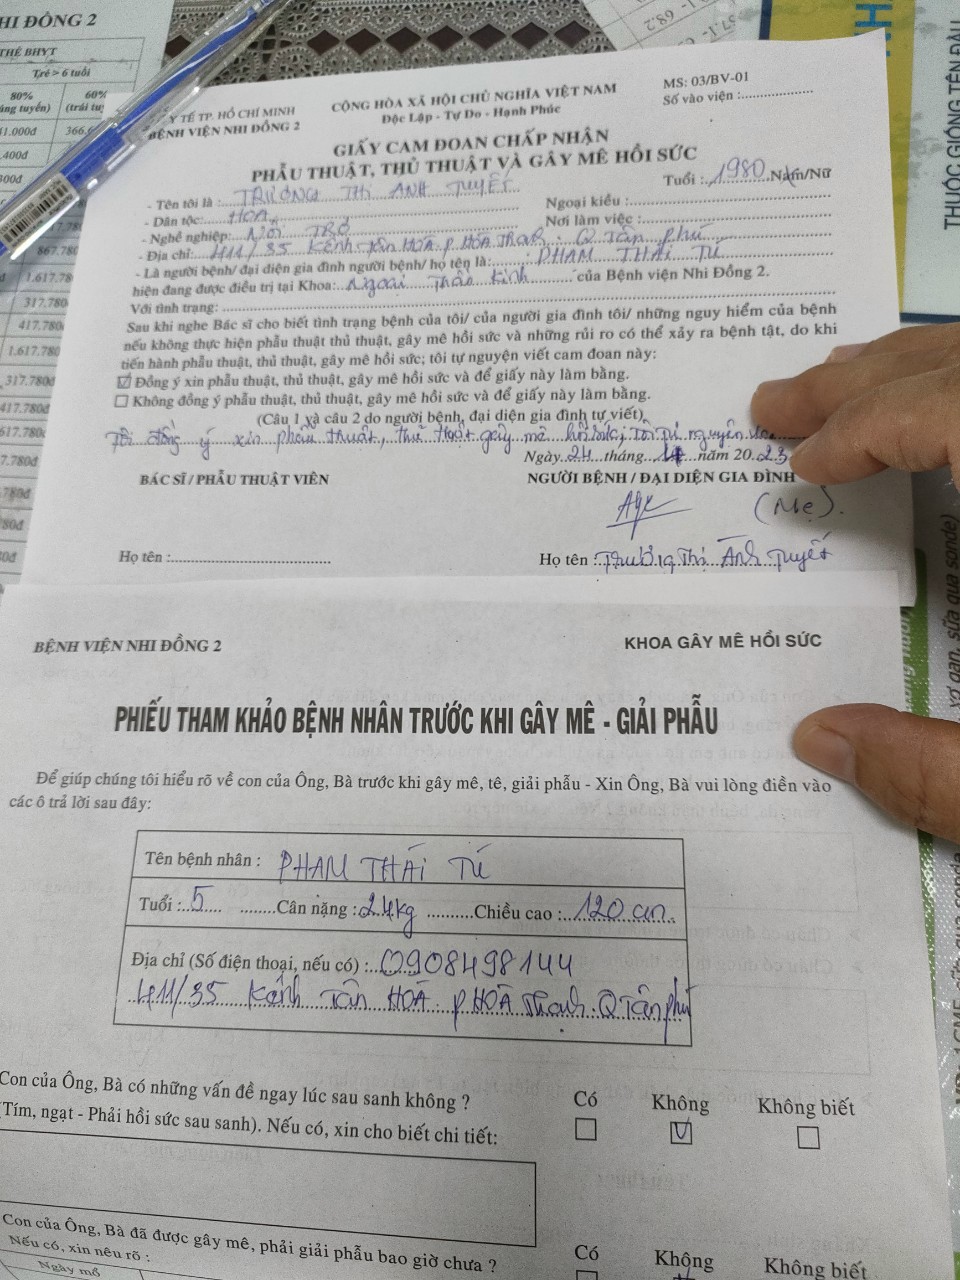 HI ĐỒNG 2
THẺ BHYT
Trẻ > 6 tuổi
80%
60%
1.000đ
.400đ
867.780
1.617.780
317.780
417.780
1.617.780
317.780đ
417.780đ
617.780đ
7.780đ
.780đ
80đ
0đ
68.2
THUỐC GIỐNG TÊN ĐẦU
Y TẾ TP. HỒ CHÍ MINH
BỆNH VIỆN NHI ĐỒNG 2
CỘNG HÒA XÃ HỘI CHỦ NGHĨA VIỆT NAM
Độc Lập - Tự Do - Hạnh Phúc
MS: 03/BV-01
Số vào viện :
GIẤY CAM ĐOAN CHẤP NHẬN
PHẪU THUẬT, THỦ THUẬT VÀ GÂY MÊ HỒI SỨC
- Tên tôi là : TRƯƠNG THỊ ÁNH TUYẾT Tuổi : 1980 Nam/Nữ
- Dân tộc: HOA Ngoại kiều :
- Nghề nghiệp: Nội TRỢ Nơi làm việc :
- Địa chỉ: 411/35 Kênh Tân HOÁ P HOÀ Thạnh Q Tân phú
- Là người bệnh/ đại diện gia đình người bệnh/ họ tên là: PHAM THÁI TÚ
hiện đang được điều trị tại Khoa: Ngoại Thần Kinh của Bệnh viện Nhi Đồng 2.
Với tình trạng:
Sau khi nghe Bác sĩ cho biết tình trạng bệnh của tôi/ của người gia đình tôi/ những nguy hiểm của bệnh
nếu không thực hiện phẫu thuật thủ thuật, gây mê hồi sức và những rủi ro có thể xảy ra bệnh tật, do khi
tiến hành phẫu thuật, thủ thuật, gây mê hồi sức; tôi tự nguyện viết cam đoan này:
Đồng ý xin phẫu thuật, thủ thuật, gây mê hồi sức và để giấy này làm bằng.
Không đồng ý phẫu thuật, thủ thuật, gây mê hồi sức và để giấy này làm bằng.
(Câu 1 và câu 2 do người bệnh, đại diện gia đình tự viết)
Tôi đồng ý xin phẫu thuật, thủ thuật gây mê hồi sức, Tôi Tự nguyện
Ngày 24 tháng năm 20 23
BÁC SĨ / PHẪU THUẬT VIÊN
NGƯỜI BỆNH / ĐẠI DIỆN GIA ĐÌNH
(Mẹ).
Họ tên :
Họ tên : Trương Thị Ánh Tuyết
BỆNH VIỆN NHI ĐỒNG 2
KHOA GÂY MÊ HỒI SỨC
PHIẾU THAM KHẢO BỆNH NHÂN TRƯỚC KHI GÂY MÊ - GIẢI PHẪU
Để giúp chúng tôi hiểu rõ về con của Ông, Bà trước khi gây mê, tê, giải phẫu - Xin Ông, Bà vui lòng điền vào
các ô trả lời sau đây:
Tên bệnh nhân : PHAM THÁI TÚ
Tuổi : 5 Cân nặng : 24kg Chiều cao : 120 cm.
Địa chỉ (Số điện thoại, nếu có) : 0908498144
411/35 Kênh Tân HOÁ P HOÀ Thạnh Q Tân phú
Con của Ông, Bà có những vấn đề ngay lúc sau sanh không ?
Có Không Không biết
(Tím, ngạt - Phải hồi sức sau sanh). Nếu có, xin cho biết chi tiết:
Con của Ông, Bà đã được gây mê, phải giải phẫu bao giờ chưa ?
Có Không Không biết
Nếu có, xin nêu rõ :
Ngày mổ